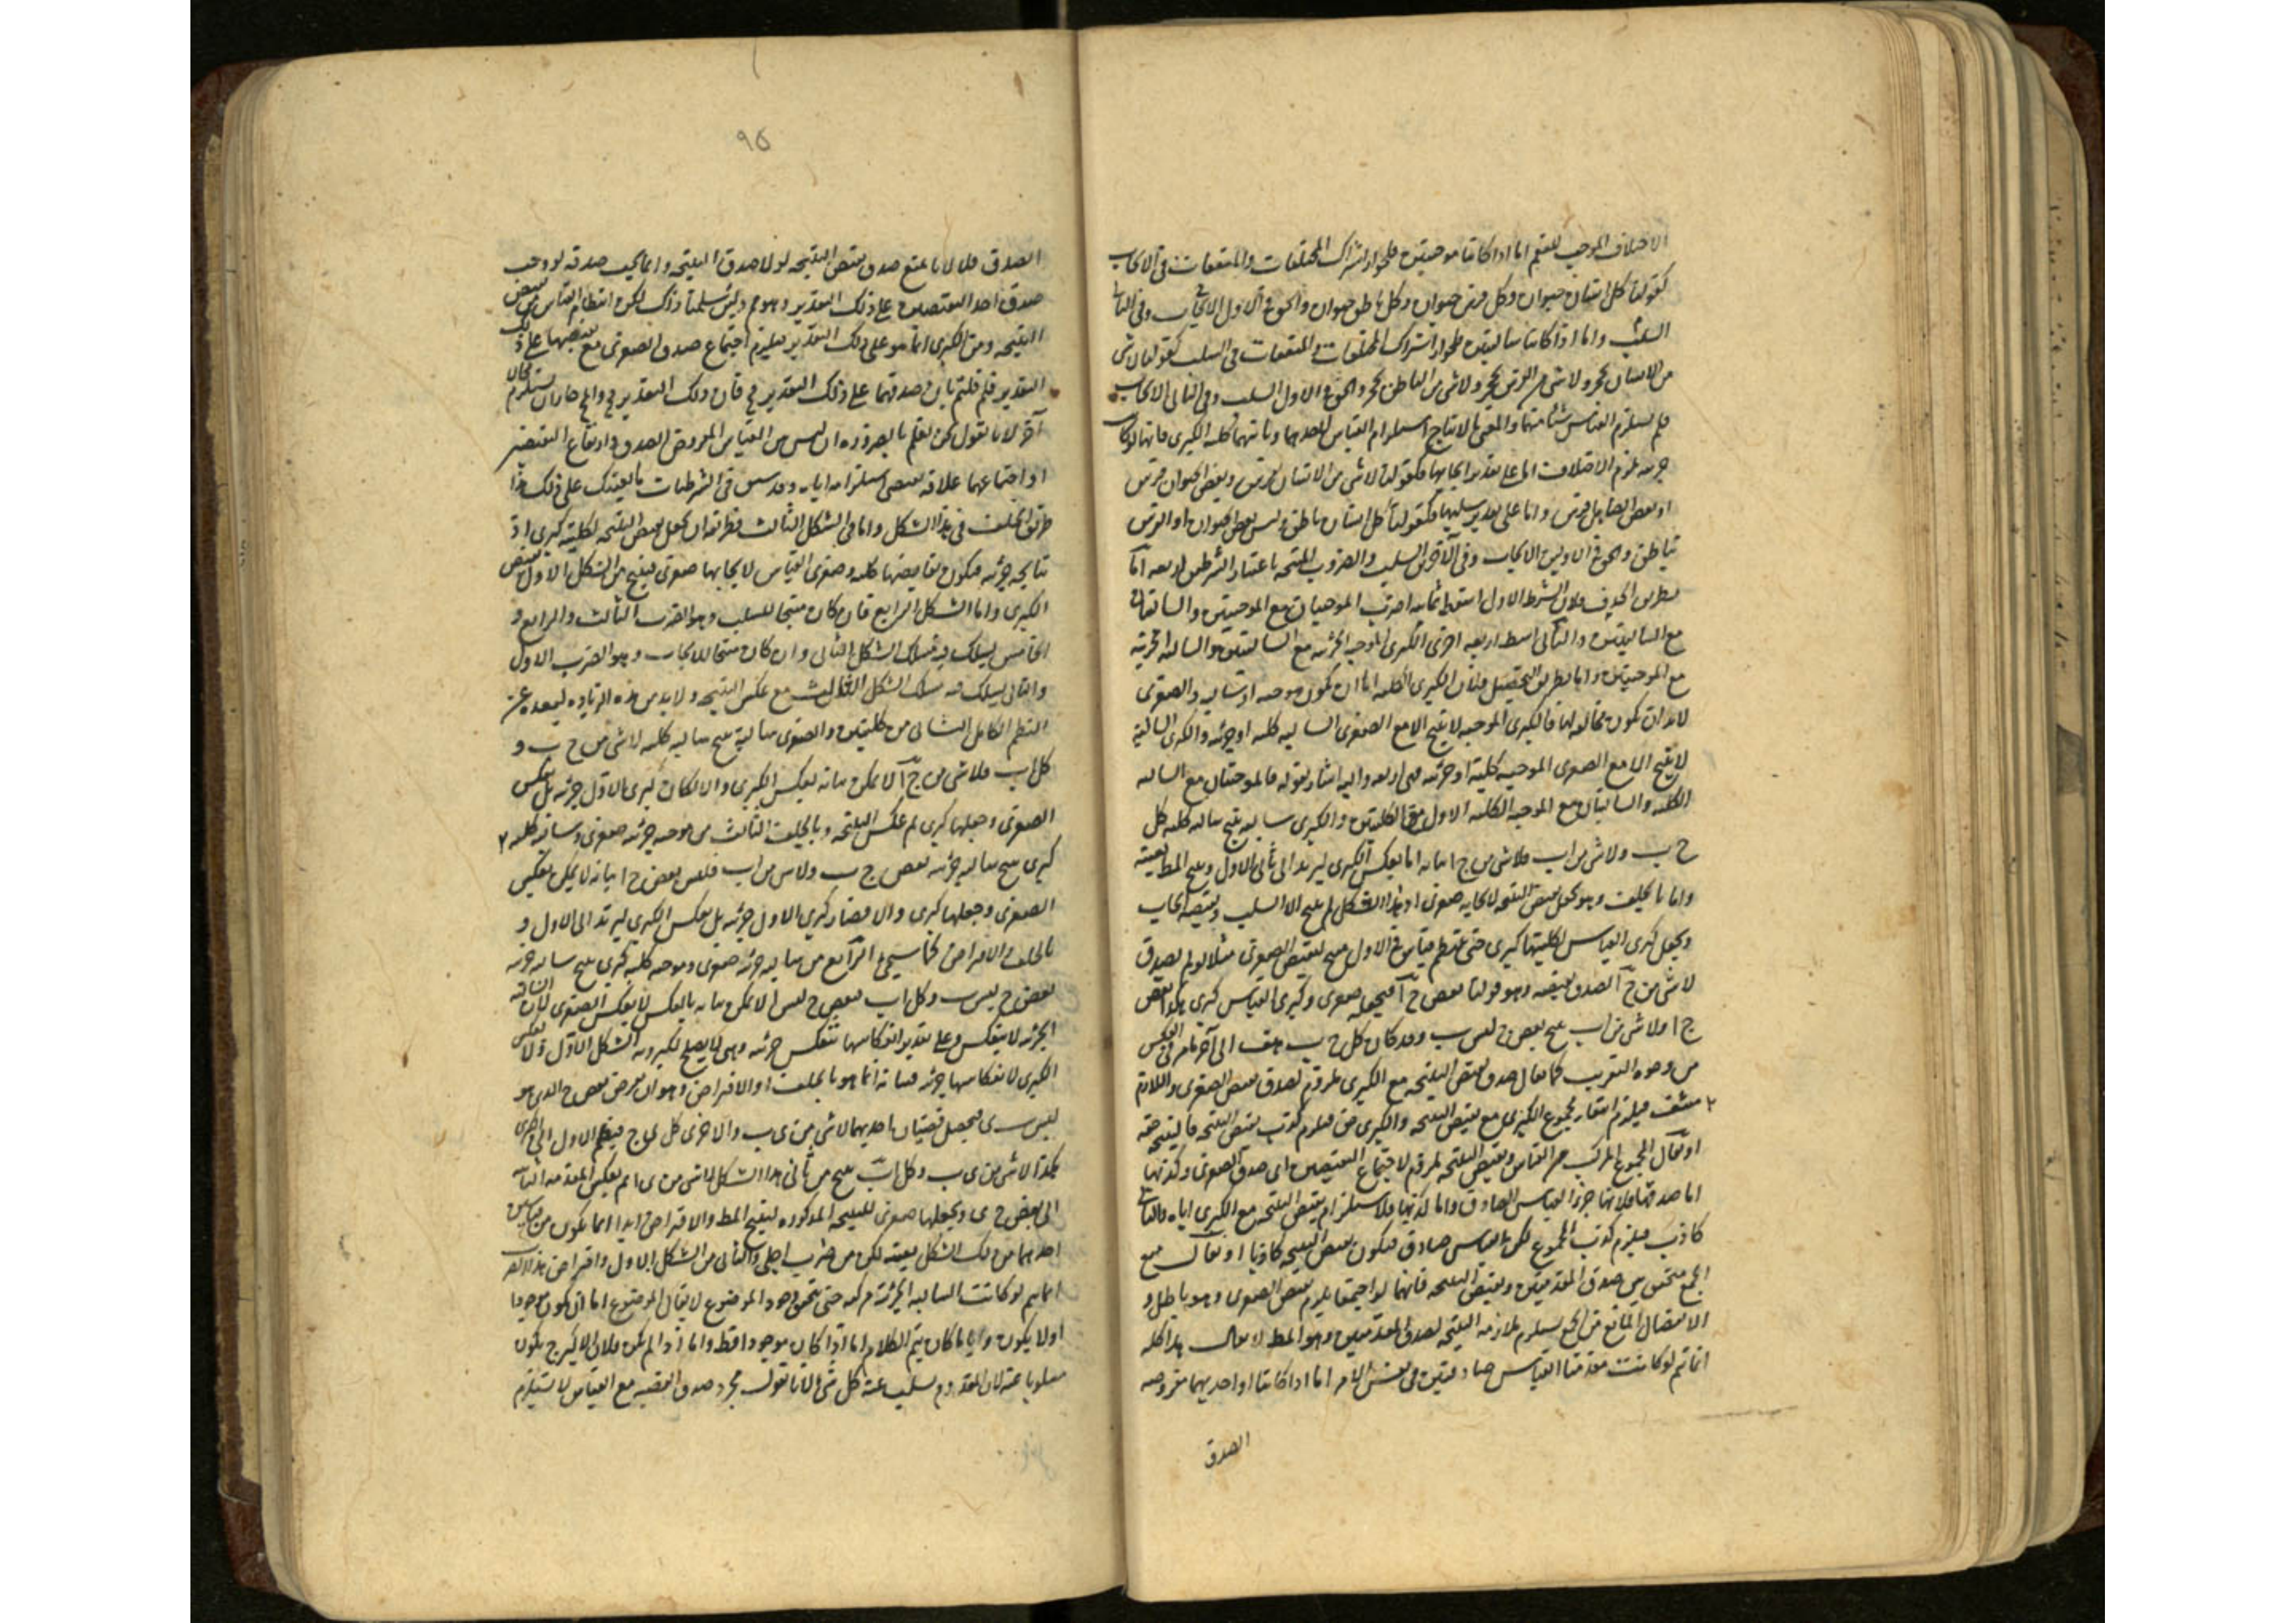 الاختلاف الموجب للعقم اما اذا كانتا موجبتين فلجواز اشتراك المختلفات والمتفقات فى الايجاب
كقولنا كل انسان حيوان وكل فرس حيوان وكل ناطق حيوان والحق فى الاول الايجاب وفى الثانى
السلب واما اذا كانتا سالبتين فلجواز اشتراك المختلفات والمتفقات فى السلب كقولنا لا شى
من الانسان بحجر ولا شى من الفرس بحجر ولا شى من الناطق بحجر والحق فى الاول السلب وفى الثانى الايجاب
فلم يستلزم القياس شيئا منهما والمعنى بالانتاج استلزام القياس لاحدهما وثانيتهما كلية الكبرى فانها لو كانت
جزئية لزم الاختلاف اما على تقدير ايجابها فكقولنا لا شى من الانسان بفرس وبعض الحيوان فرس
او بعض الصاهل فرس واما على تقدير سلبها فكقولنا كل انسان ناطق وليس بعض الحيوان او الفرس
بناطق والحق فى الاولين الايجاب وفى الآخرين السلب والضروب المنتجة باعتبار الشرطين اربعة اما
بطريق الحذف فلان الشرط الاول اسقط ثمانية اضرب الموجبتان مع الموجبتين والسالبتان
مع السالبتين والثانى اسقط اربعة اخرى الكبرى الموجبة الجزئية مع السالبتين والسالبة الجزئية
مع الموجبتين واما بطريق التحصيل فلان الكبرى الكلية اما ان تكون موجبة او سالبة والصغرى
لا بد ان تكون مخالفة لها فالكبرى الموجبة لا تنتج الا مع الصغرى السالبة كلية او جزئية والكبرى السالبة
لا ينتج الا مع الصغرى الموجبة كلية او جزئية فهى اربعة واليه اشار بقوله فالموجبتان مع السالبة
الكلية والسالبتان مع الموجبة الكلية الاول من الكليتين والكبرى سالبة ينتج سالبة كلية كل
ج ب ولا شى من اب فلا شى من ج ا بيانه اما بعكس الكبرى ليرتد الى ثانى الاول وينتج المط بعينه
واما بالخلف وهو جعل نقيض النتيجة لايجابه صغرى اذ هذا الشكل لم ينتج الا السلب ونقيضه ايجاب
ويجعل كبرى القياس لكليتها كبرى حتى ينتظم قياس فى الاول منتج لنقيض الصغرى مثلا لو لم يصدق
لا شى من ج ا لصدق نقيضه وهو قولنا بعض ج ا فنجعله صغرى وكبرى القياس كبرى هكذا بعض
ج ا ولا شى من اب ينتج بعض ج ليس ب وقد كان كل ج ب هف الى آخر ما مر فى العكس
من وجوه التقريب كما يقال صدق نقيض النتيجة مع الكبرى ملزوم لصدق نقيض الصغرى واللازم
منتف فيلزم انتفاء مجموع الكبرى مع نقيض النتيجة والكبرى حق فيلزم كذب نقيض النتيجة فالنتيجة حقة
او يقال المجموع المركب من القياس ونقيض النتيجة ملزوم لاجتماع النقيضين اى صدق الصغرى وكذبها
اما صدقها فلانها جزء القياس الصادق واما كذبها فلاستلزام نقيض النتيجة مع الكبرى اياه والتالى
كاذب فيلزم كذب المجموع لكن القياس صادق فيكون نقيض النتيجة كاذبا او يقال منع
الجمع متحقق بين صدق المقدمتين ونقيض النتيجة فانهما لو اجتمعا يلزم نقيض الصغرى وهو باطل و
الانفصال المانع من الجمع يستلزم ملازمة النتيجة لصدق المقدمتين وهو المط لا يقال هذا كله
انما تم لو كانت مقدمتا القياس صادقتين فى نفس الامر اما اذا كانتا او احديهما مفروضة
الصدق
٩٥
الصدق فلا لانا نمنع صدق نقيض النتيجة لولا صدق النتيجة وانما يجب صدقه لو وجب
صدق احد النقيضين على ذلك التقدير وهو م ولئن سلمنا ذلك لكن انتظام القياس من نقيض
النتيجة ومن الكبرى انما هو على ذلك التقدير فيلزم اجتماع صدق الصغرى مع نقيضها على ذلك
التقدير فلم قلتم بان صدقهما على ذلك التقدير مح فان ذلك التقدير مح والمح جاز ان يستلزم محال
آخر لانا نقول نحن نعلم بالضرورة ان ليس بين القياس المفروض الصدق وارتفاع النقيضين
او اجتماعهما علاقة يقتضى استلزامه اياه وقد سبق فى الشرطيات ما يفيدك على ذلك هذا
طريق الخلف فى هذا الشكل واما فى الشكل الثالث فطريقه ان يجعل نقيض النتيجة لكليته كبرى اذ
نتايجه جزئية فيكون نقايضها كلية وصغرى القياس لايجابها صغرى فينتج من الشكل الاول نقيض
الكبرى واما الشكل الرابع فان كان منتجا للسلب وهو الضرب الثالث والرابع و
الخامس يسلك فيه مسلك الشكل الثانى وان كان منتجا للايجاب وهو الضرب الاول
والثانى يسلك فيه مسلك الشكل الثالث مع عكس النتيجة ولا بد من هذه الزيادة لبعده عن
النظم الكامل الثانى من كليتين والصغرى سالبة ينتج سالبة كلية لا شى من ج ب و
كل اب فلا شى من ج ا لا يمكن بيانه بعكس الكبرى والا لكان كبرى الاول جزئية بل بعكس
الصغرى وجعلها كبرى ثم عكس النتيجة وبالخلف الثالث من موجبة جزئية صغرى وسالبة كلية
كبرى ينتج سالبة جزئية بعض ج ب ولا شى من اب فليس بعض ج ا بيانه لا يمكن بعكس
الصغرى وجعلها كبرى والا فصار كبرى الاول جزئية بل بعكس الكبرى ليرتد الى الاول و
بالخلف والافتراض كما سيجئ الرابع من سالبة جزئية صغرى وموجبة كلية كبرى ينتج سالبة جزئية
بعض ج ليس ب وكل اب فبعض ج ليس ا لا يمكن بيانه بالعكس لا بعكس الصغرى لان السالبة
الجزئية لا ينعكس وعلى تقدير انعكاسها تنعكس جزئية وهى لا يصلح لكبروية الشكل الاول ولا بعكس
الكبرى لانعكاسها جزئية فبيانه انما هو بالخلف او الافتراض وهو ان نفرض بعض ج الذى هو
ليس ب ى فيحصل قضيتان احديهما لا شى من ى ب والاخرى كل ى ج فيضم الاول الى الكبرى
هكذا لا شى من ى ب وكل اب ينتج من ثانى هذا الشكل لا شى من ى ا ثم بعكس المقدمة الثانية
الى بعض ج ى ونجعلها صغرى للنتيجة المذكورة لينتج المط والافتراض ابدا انما يكون من قياسين
احدهما من ذلك الشكل بعينه لكن من ضرب اجلى والثانى من الشكل الاول وافتراض هذا الضرب
انما يتم لو كانت السالبة الجزئية مركبة حتى يتحقق وجود الموضوع لا يقال الموضوع اما ان يكون موجودا
او لا يكون وايا ما كان يتم الكلام اما اذا كان موجودا فظ واما اذا لم يكن فلان الاكبر ح يكون
مسلوبا عنه لان المعدوم يسلب عنه كل شى لانا نقول مجرد صدق القضية مع القياس لا يستلزم